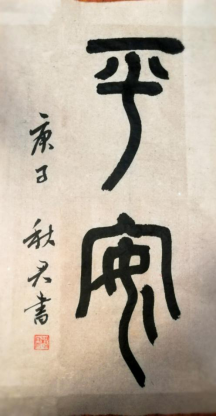 平安
庚子 秋君書